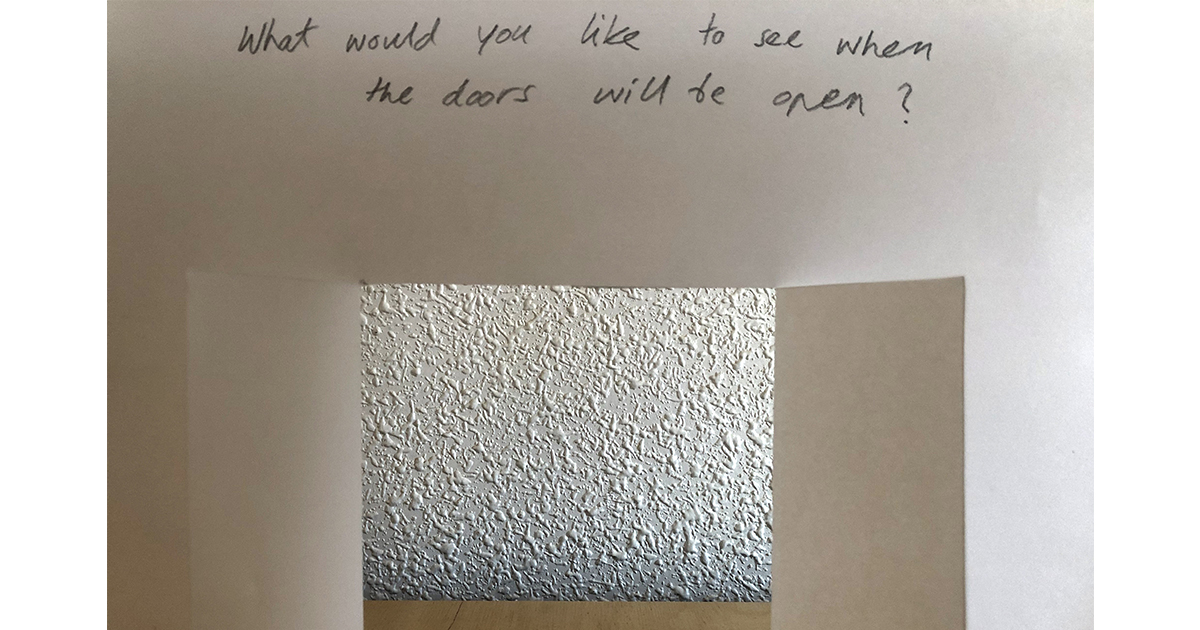 What would you like to see when
the doors will be open?